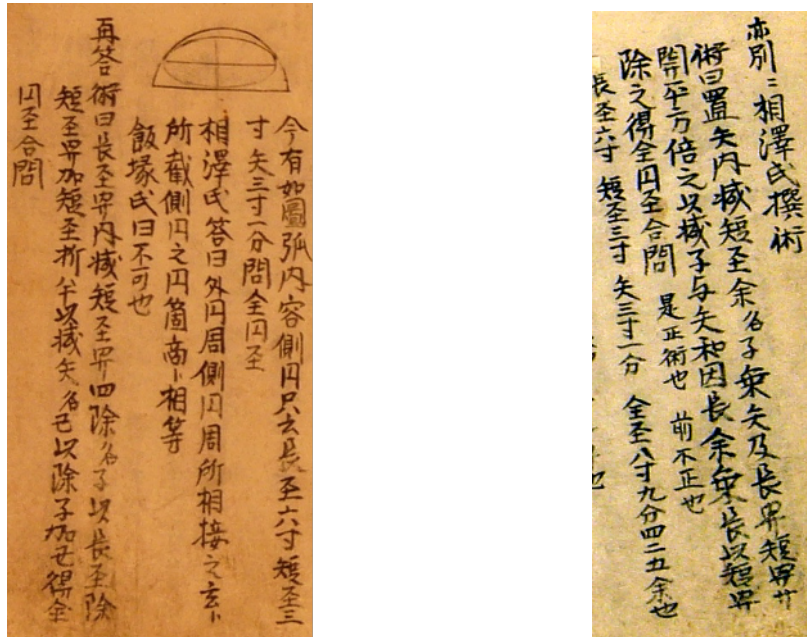 今有如圖弧内容側円只云長至六寸短至三
寸矢三寸一分問全円至
相澤氏答曰外円周側円周所相接之玄ト
所截側円之円箇商ト相等
飯塚氏曰不可也
再答術曰長至畀内減短至畀四除名子以長至除
短至畀加短至折半以減矢名已以除子加已得全
円至合問
亦別ニ相澤氏撰術
術曰置矢内減短至余名子乗矢及長畀短畀廾
開平方倍之以減子与矢和因長余乗長以短畀
除之得全円至合問 是正術也 前不正也
長至六寸 短至三寸 矢三寸一分 全至八寸九分四二五余也